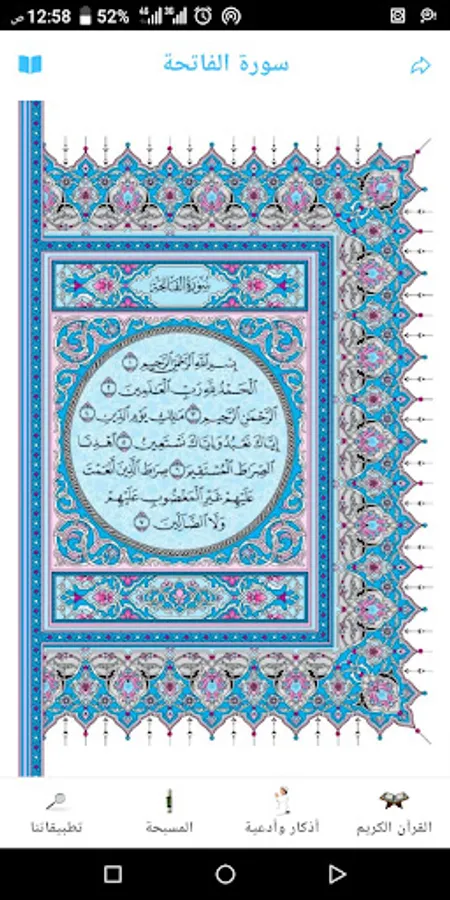 ص 12:58 52% 4G 3G
سورة الفاتحة
سُورَةُ الفَاتِحَةِ
بِسْمِ اللَّهِ الرَّحْمَٰنِ الرَّحِيمِ ١
الْحَمْدُ لِلَّهِ رَبِّ الْعَالَمِينَ ٢
الرَّحْمَٰنِ الرَّحِيمِ ٣ مَالِكِ يَوْمِ الدِّينِ ٤
إِيَّاكَ نَعْبُدُ وَإِيَّاكَ نَسْتَعِينُ ٥ اهْدِنَا
الصِّرَاطَ الْمُسْتَقِيمَ ٦ صِرَاطَ الَّذِينَ أَنْعَمْتَ
عَلَيْهِمْ غَيْرِ الْمَغْضُوبِ عَلَيْهِمْ
وَلَا الضَّالِّينَ ٧
القرآن الكريم أذكار وأدعية المسبحة تطبيقاتنا